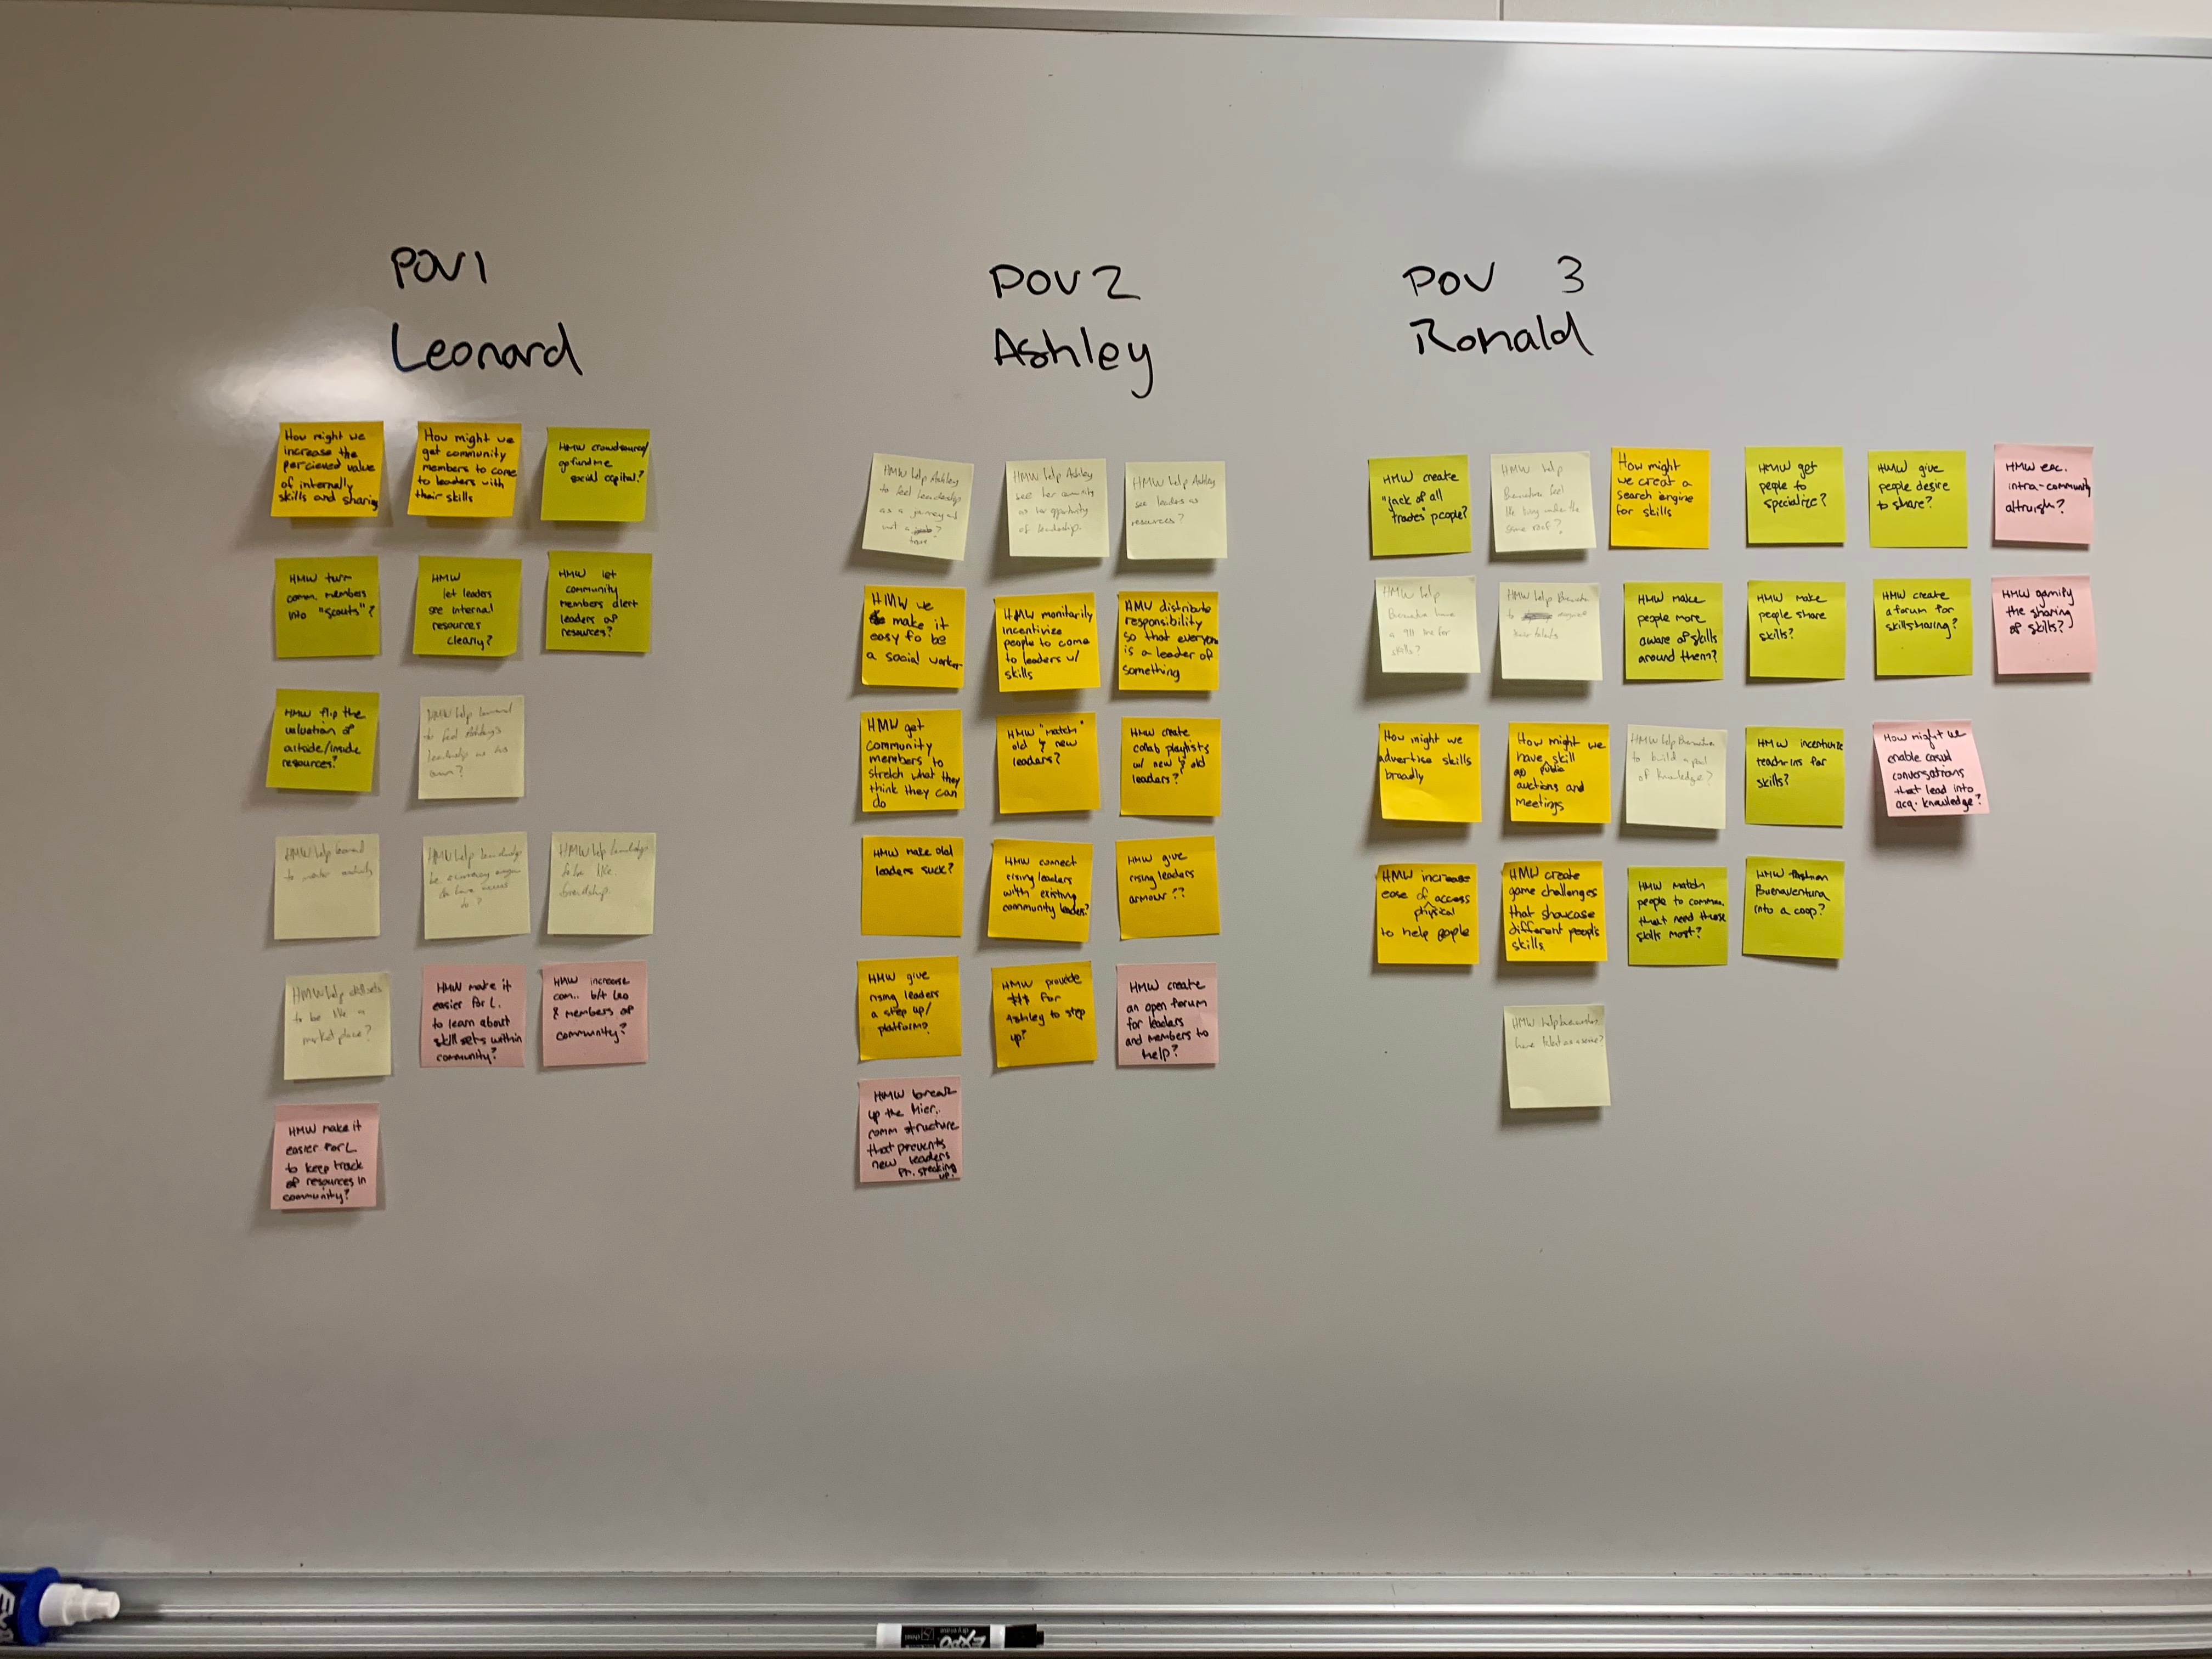 POV 1
Leonard
How might we
increase the
percieved value
of internally
skills and sharing
How might we
get community
members to come
to leaders with
their skills
HMW crowdsource/
gofundme
social capital?
HMW turn
comm. members
into "scouts"?
HMW
let leaders
see internal
resources
clearly?
HMW let
community
members alert
leaders of
resources?
HMW flip the
valuation of
outside/inside
resources?
HMW help Leonard
to feel Ashley's
leadership as his
own?
HMW help Leonard
to
HMW help leadership
be
HMW help leadership
to be like
friendship.
HMW help skillsets
to be like a
market place?
HMW make it
easier for L.
to learn about
skill sets within
community?
HMW increase
com.. b/t Leo
& members of
community?
HMW make it
easier for L
to keep track
of resources in
community?
POV 2
Ashley
HMW help Ashley
to feel leadership
as a journey and
not a
HMW help Ashley
see her community
as her opportunity
of leadership.
HMW help Ashley
see leaders as
resources?
HMW we
make it
easy fo be
a social worker
HMW monitarily
incentivize
people to come
to leaders w/
skills
HMW distribute
responsibility
so that everyone
is a leader of
something
HMW get
community
members to
stretch what they
think they can
do
HMW "match"
old & new
leaders?
HMW create
collab playlists
w/ new & old
leaders?
HMW make old
leaders suck?
HMW connect
rising leaders
with existing
community leaders?
HMW give
rising leaders
armour??
HMW give
rising leaders
a step up/
platform?
HMW provide
$$$ for
Ashley to step
up?
HMW create
an open forum
for leaders
and members to
help?
HMW break
up the hier.
comm structure
that prevents
new leaders
fr. speaking
up?
POV 3
Ronald
HMW create
"jack of all
trades" people?
HMW help
feel
like living under the
same roof?
How might
we creat a
search engine
for skills
HMW get
people to
specialize?
HMW give
people desire
to share?
HMW enc.
intra-community
altruism?
HMW help
have
a 911 line for
skills?
HMW help
to
their talents
HMW make
people more
aware of skills
around them?
HMW make
people share
skills?
HMW create
a forum for
skillsharing?
HMW gamify
the sharing
of skills?
How might we
advertise skills
broadly
How might we
have skill
public
auctions and
meetings
HMW help
to build a pool
of knowledge?
HMW incentivize
teach-ins for
skills?
How might we
enable casual
conversations
that lead into
acq. knowledge?
HMW increase
ease of access
physical
to help people
HMW create
game challenges
that showcase
different peoples
skills
HMW match
people to comm.
that need those
skills most?
HMW
Buenaventura
into a coop?
HMW help
have talent as a service?
EXPO